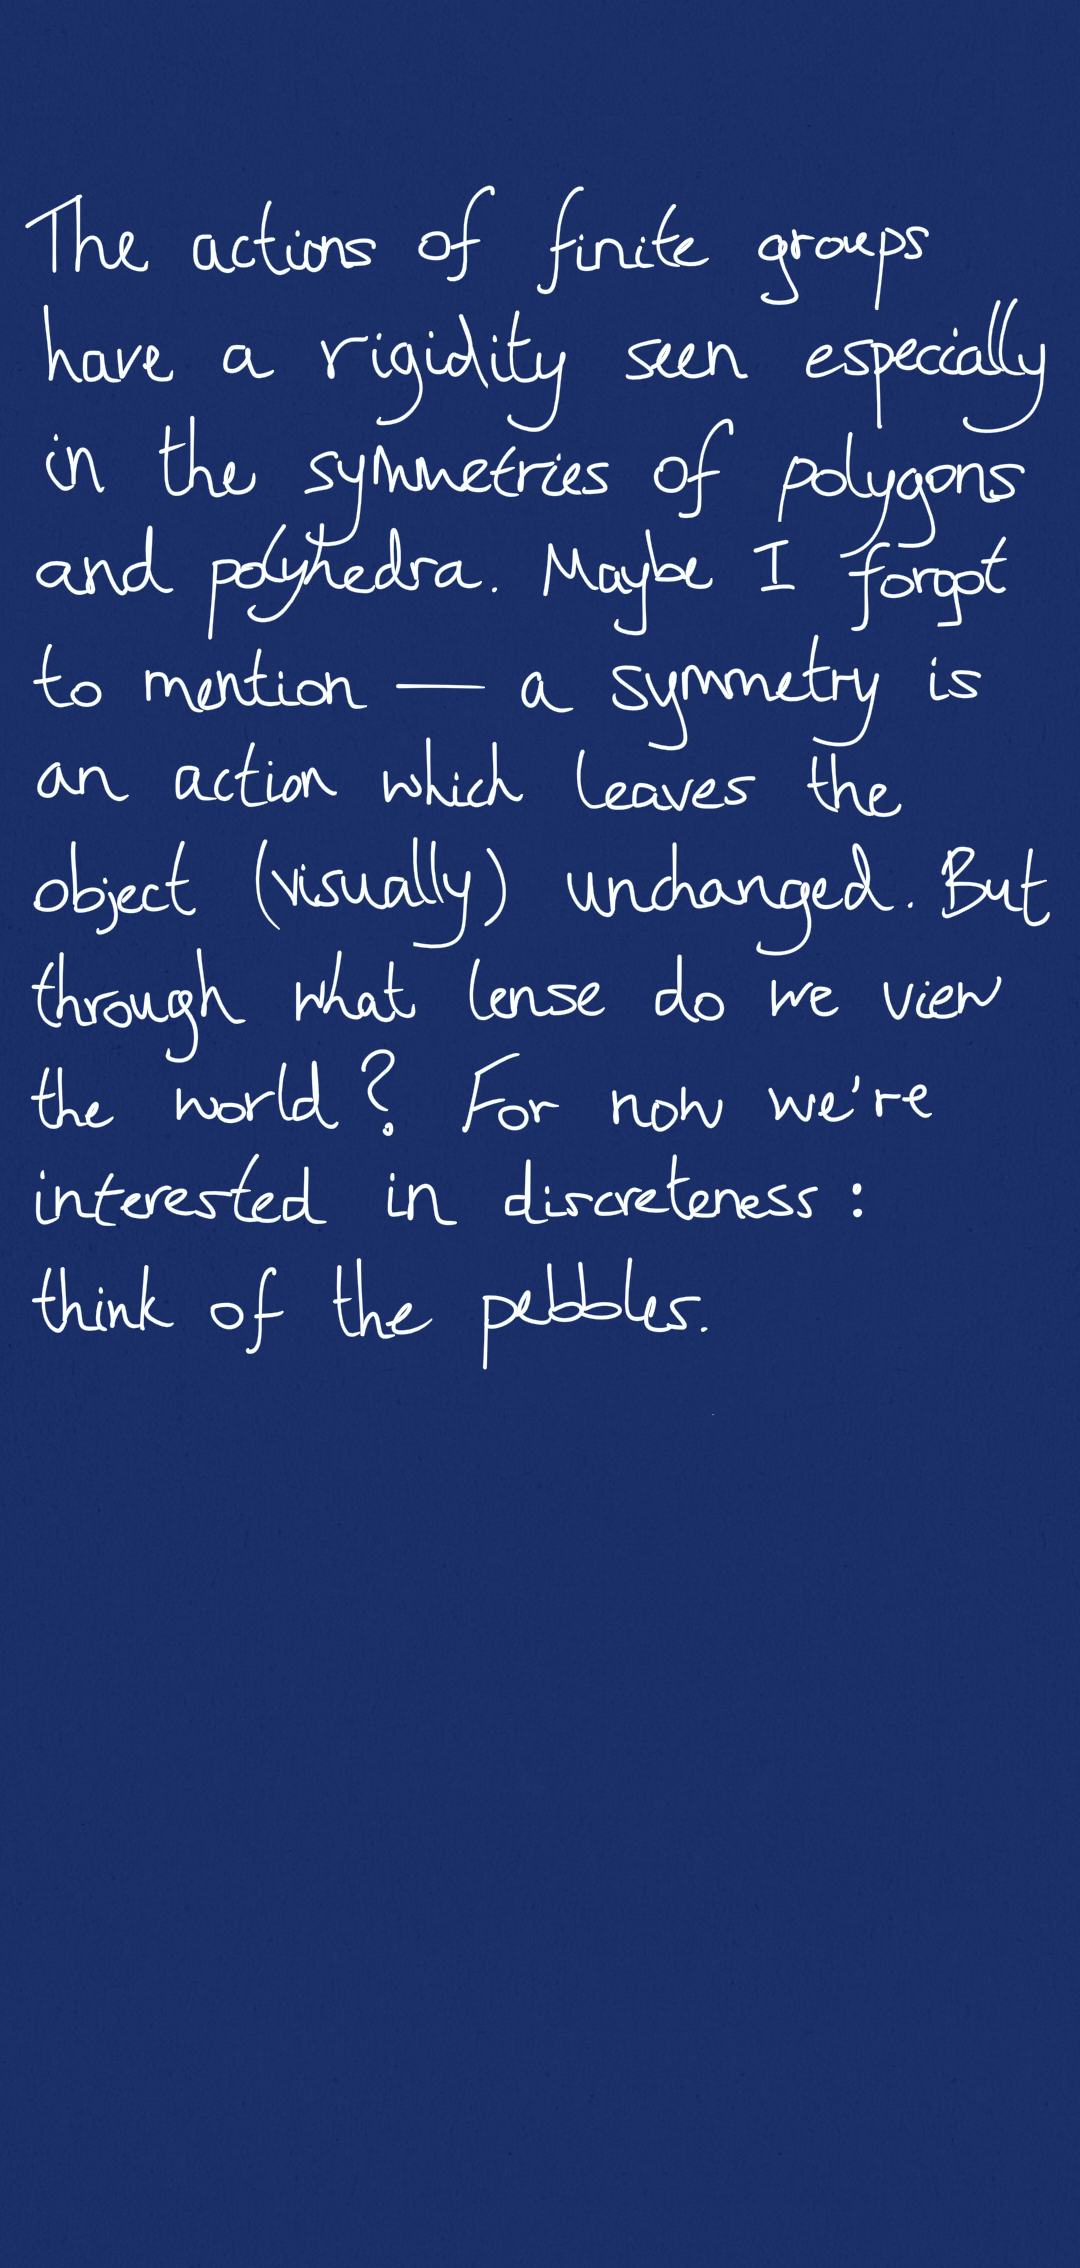 The actions of finite groups
have a rigidity seen especially
in the symmetries of polygons
and polyhedra. Maybe I forgot
to mention — a symmetry is
an action which leaves the
object (visually) unchanged. But
through what lense do we view
the world? For now we're
interested in discreteness:
think of the pebbles.